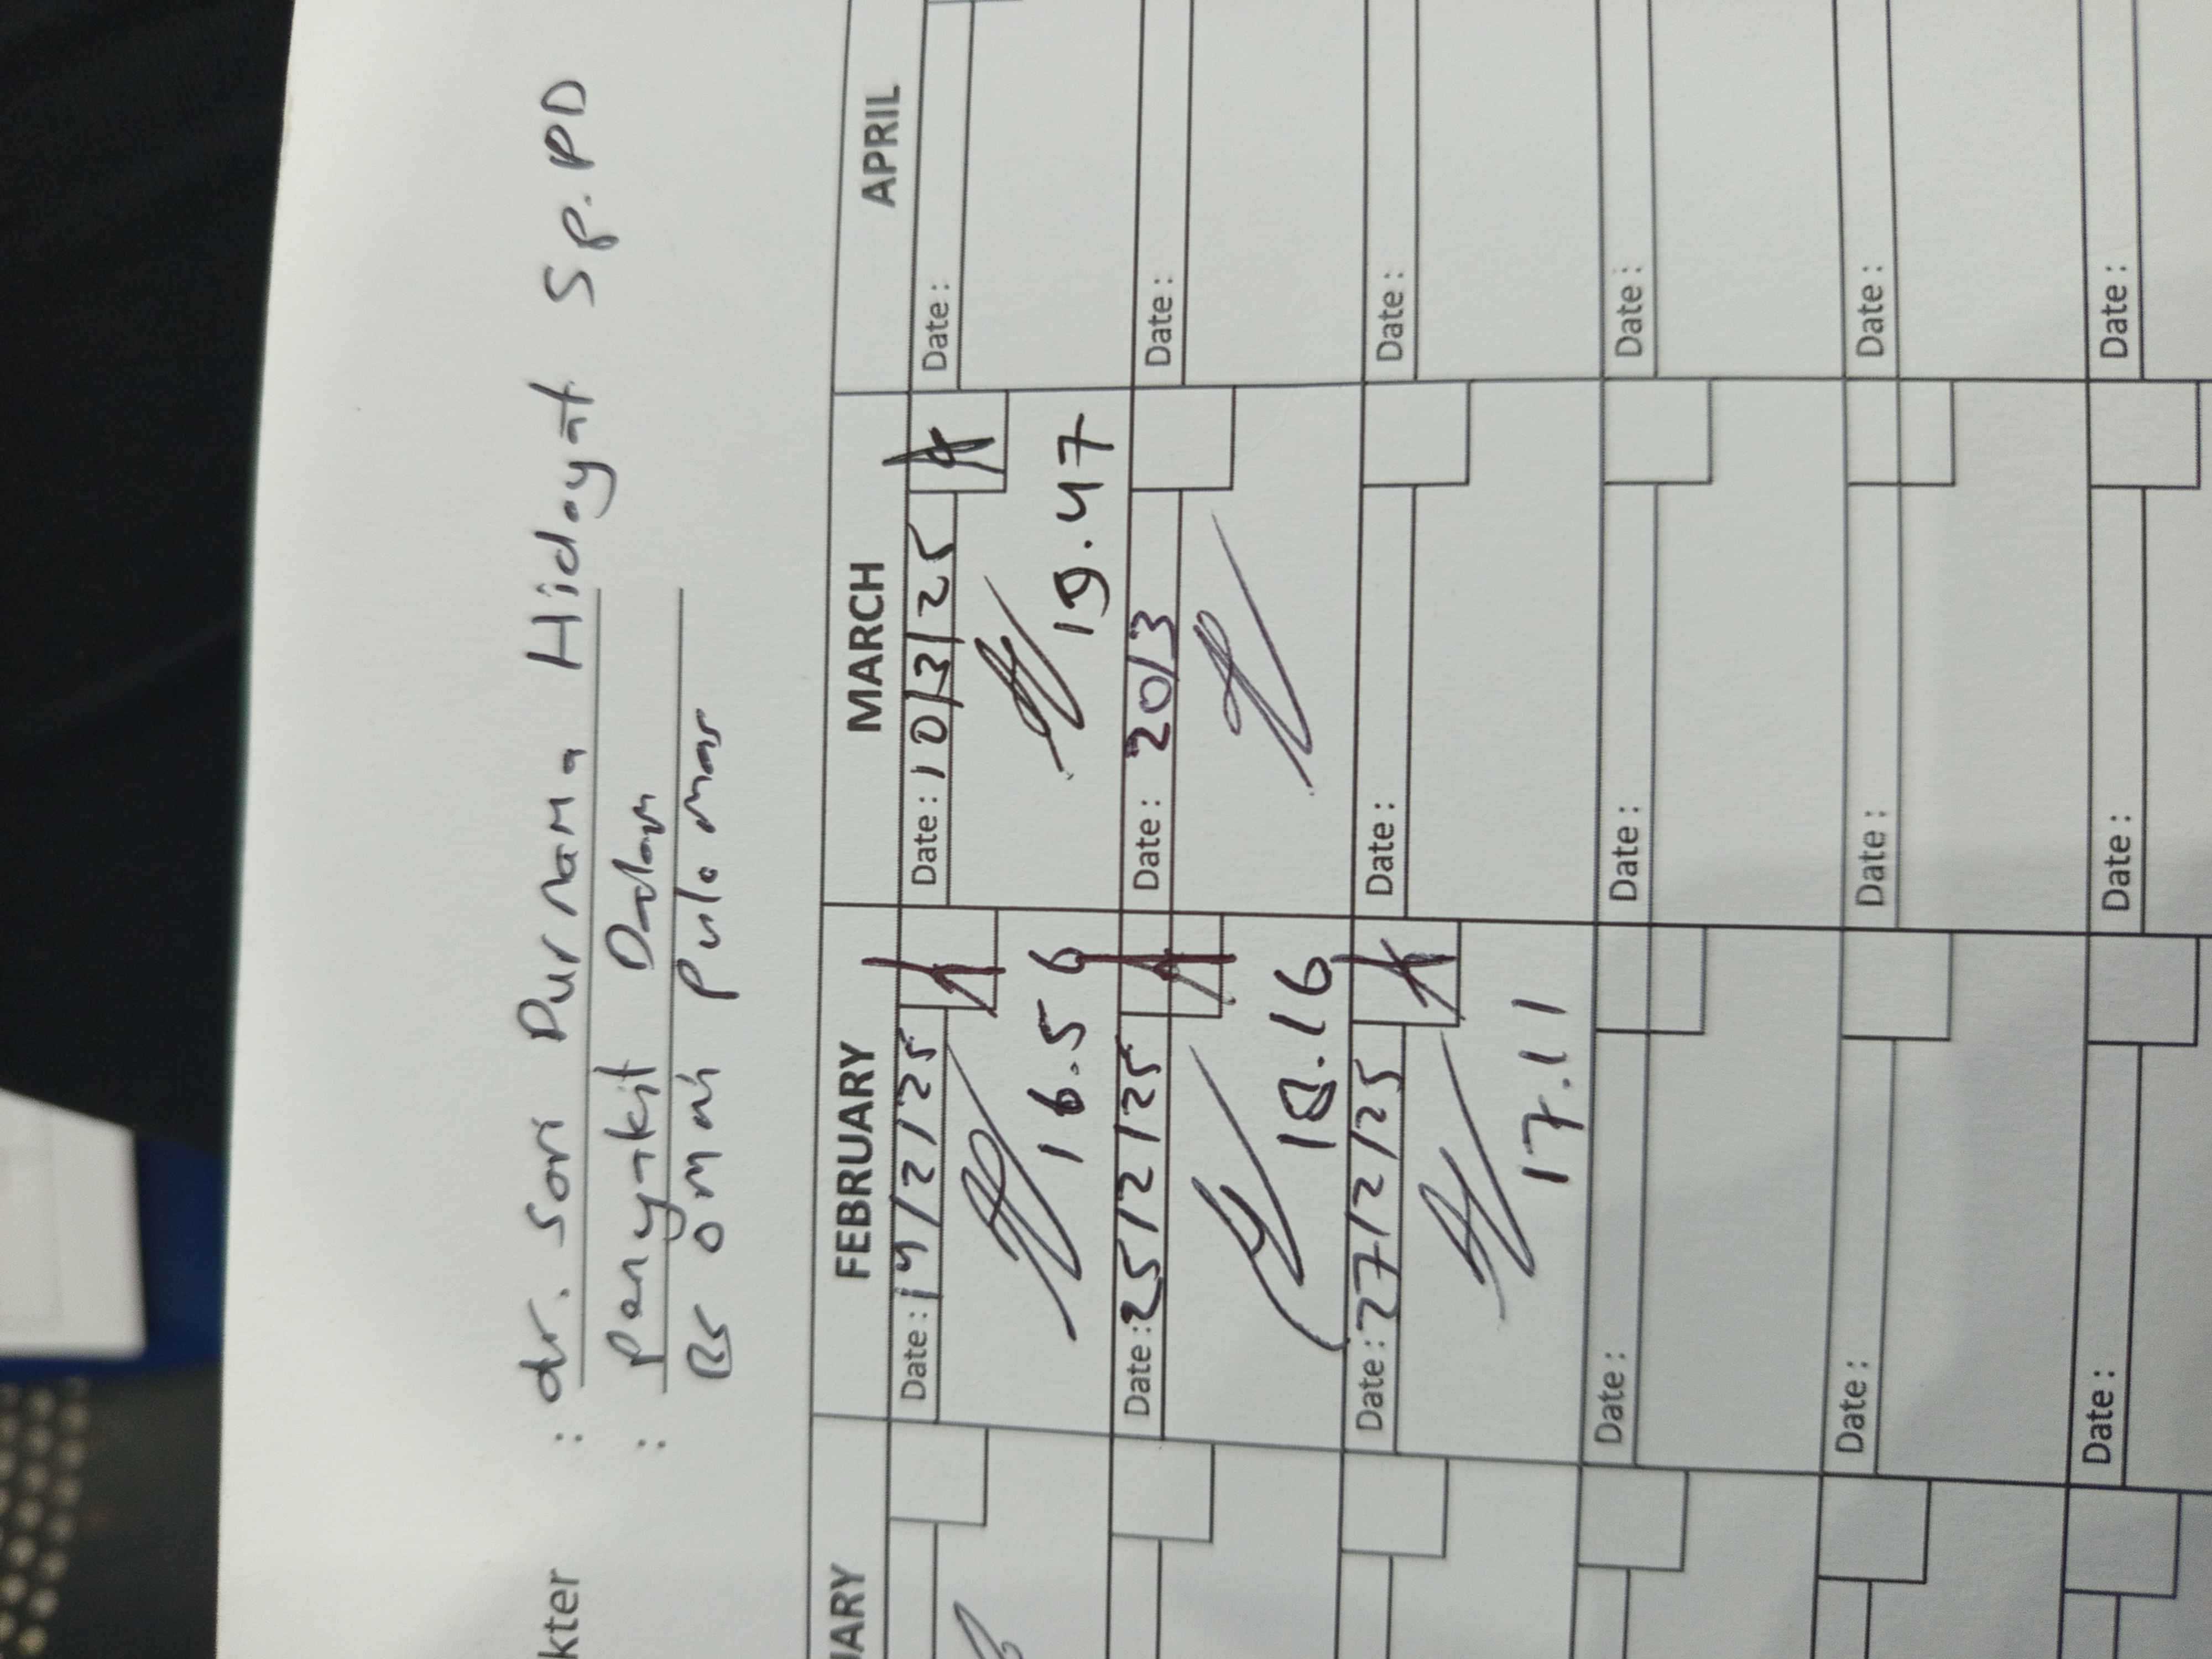 kter : dr. Sari Purnama Hidayat Sp.PD
: Penyakit Dalam
RS omni Pulo mas
UARY FEBRUARY MARCH APRIL
Date: 14/2/25 Date: 10/3/25 Date:
16.56 19.47
Date: 25/2/25 Date: 20/3 Date:
18.16
Date: 27/2/25 Date: Date:
17.11
Date: Date: Date:
Date: Date: Date:
Date: Date: Date: